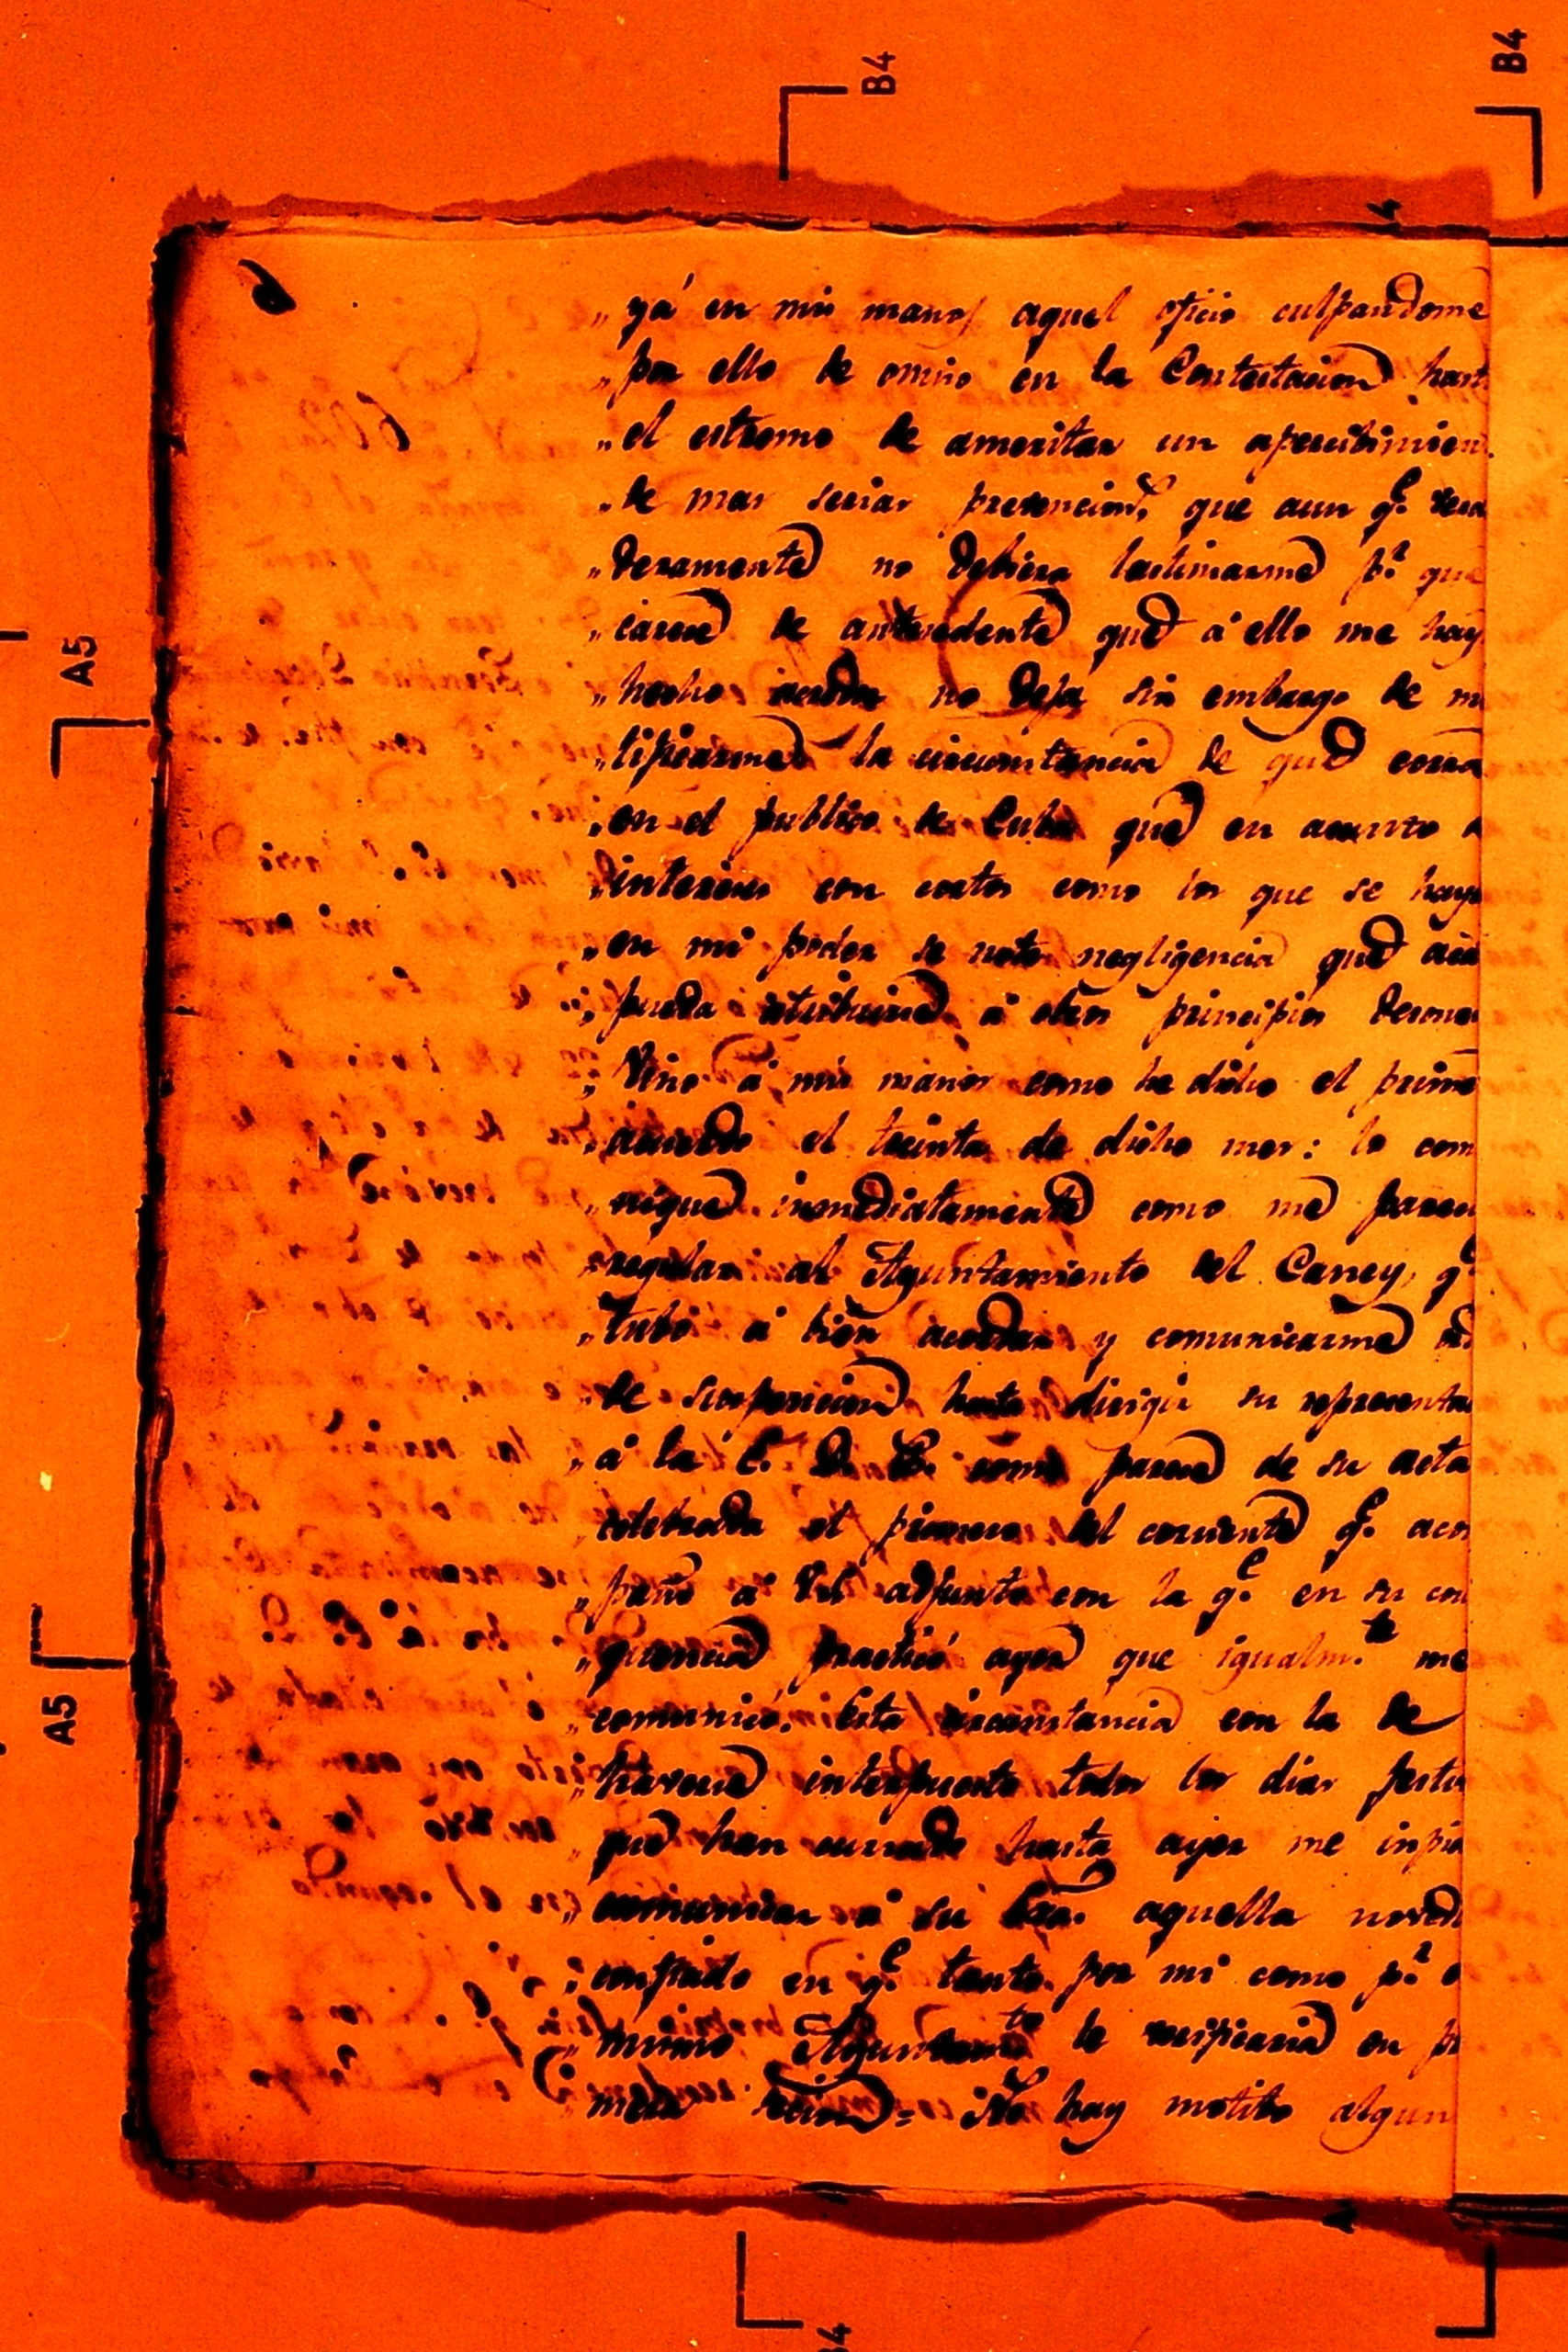 B4
B4
„ yá en mis manos aquel oficio culpandome
„ por ello de omiso en la Contestacion, hast
„ el estremo de ameritar un apercibimien
„ de mas serias prevencion.s que aun q.e verda
„ deramente no debiera lastimarme p.r que
„ carece de antecedente que á ello me hay
„ hecho no deja sin embargo de m
„ tificarme la circunstancia de que corra
„ en el publico de Cuba que en asunto
„ interino con costos como los que se haya
„ en mi poder se nota negligencia que aca
„ pueda atribuirse á otros principios
„ Vino á mis manos como he dicho el prime
„ acuerdo el treinta de dicho mes: lo com
„ niqué inmediatamente como me parec
„ regular al Ayuntamiento del Caney, q.e
„ tubó á bien acordar y comunicarme
„ de suspencion hasta dirigir su representa
„ á la E. D. P. como parece de su acta
celebrada el primero del corriente q.e aco
„ paño á VS adjunto con la q.e en su con
„ quencia practicó ayer que igualm.te me
„ comunicó. Esta circunstancia con la de
„ haverse interpuesto todos los dias festi
„ que han cursado hasta ayer me
„ comunicar á su Exa. aquella noved
„ confiado en q.e tanto por mi como p.r
„ mismo Ayuntam.to se verificaria en
= No hay motibo algun
A5
A5